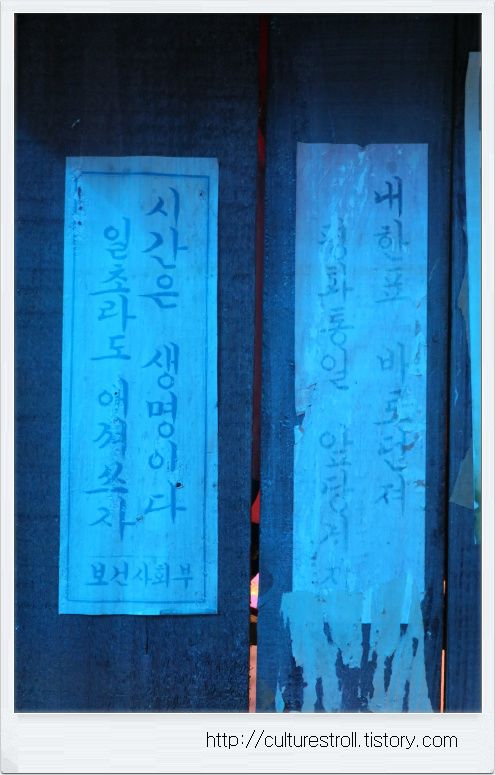 시간은 생명이다
일초라도 아껴쓰자
보건사회부
바로
평화통일 앞당기자
http://culturestroll.tistory.com